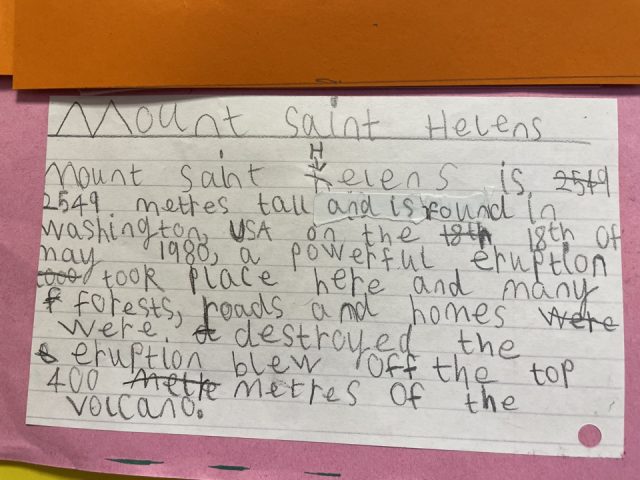 Mount Saint Helens
Mount Saint Helens is 2549
2549 metres tall and is found in
Washington, USA on the 18th 18th of
may 1980, a powerful eruption
took place here and many
forests, roads and homes were
were destroyed the
eruption blew off the top
400 metre metres of the
volcano.